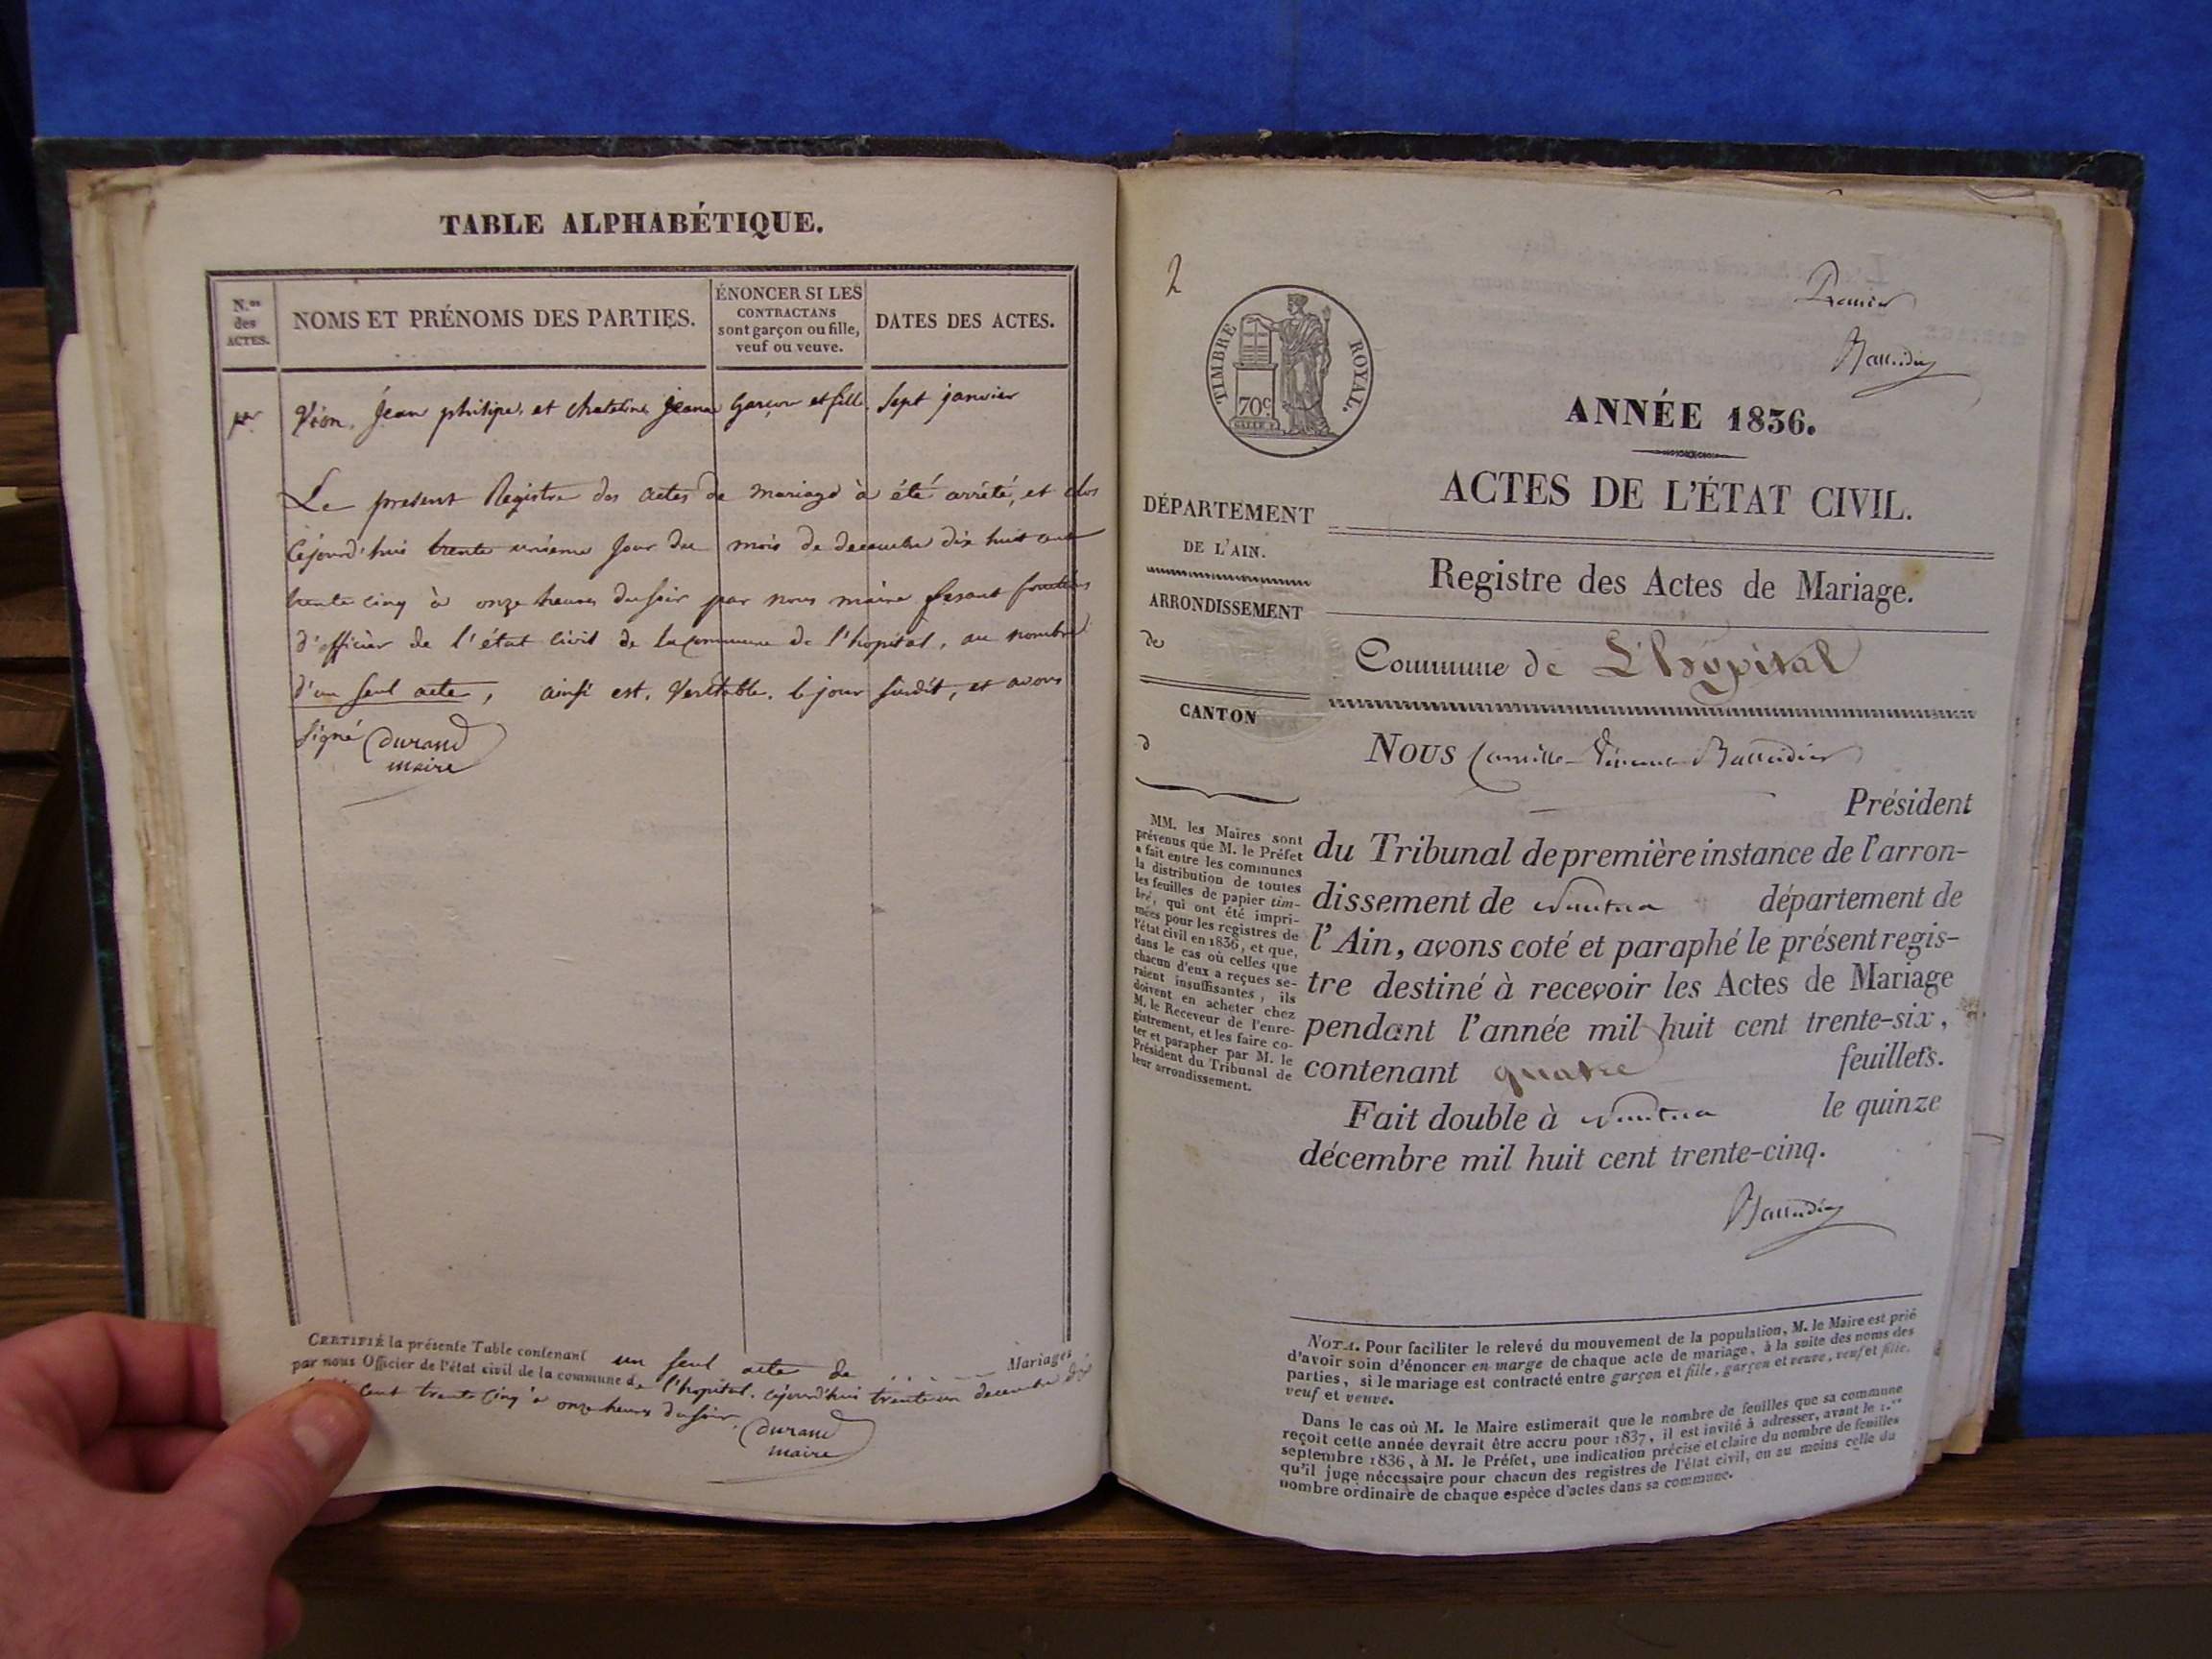 TABLE ALPHABÉTIQUE.
N.os des ACTES.
NOMS ET PRÉNOMS DES PARTIES.
ÉNONCER SI LES CONTRACTANS sont garçon ou fille, veuf ou veuve.
DATES DES ACTES.
1er Vion, Jean philipe, et chateline jeane Garçon et fille Sept janvier
Le present Registre des actes de mariage à été arrété, et clos
Cejourd'hui trente unieme jour du mois de decembre dix huit cent
trente cinq à onze heures du soir par nous maire fesant fonctions
d'officier de l'état civil de la commune de l'hopital, au nombre
d'un seul acte, ainsi est, Veritable, le jour susdit, et avons
signé Durand
maire
CERTIFIÉ la présente Table contenant un seul acte de Mariages
par nous Officier de l'état civil de la commune de l'hopital, cejourd'hui trente un decembre dix
huit cent trente cinq à onze heures du soir. Durand
maire
2
Premier
TIMBRE ROYAL.
70c
ANNÉE 1836.
ACTES DE L'ÉTAT CIVIL.
DÉPARTEMENT
DE L'AIN.
ARRONDISSEMENT
de
CANTON
d
Registre des Actes de Mariage.
Commune de L'hôpital
NOUS Camille
Président
du Tribunal de première instance de l'arron-
dissement de Nantua département de
l'Ain, avons coté et paraphé le présent regis-
tre destiné à recevoir les Actes de Mariage
pendant l'année mil huit cent trente-six,
contenant quatre feuillets.
Fait double à Nantua le quinze
décembre mil huit cent trente-cinq.
MM. les Maires sont
prévenus que M. le Préfet
a fait entre les communes
la distribution de toutes
les feuilles de papier tim-
bré, qui ont été impri-
mées pour les registres de
l'état civil en 1836, et que,
dans le cas où celles que
chacun d'eux a reçues se-
raient insuffisantes, ils
doivent en acheter chez
M. le Receveur de l'enre-
gistrement, et les faire co-
ter et parapher par M. le
Président du Tribunal de
leur arrondissement.
NOTA. Pour faciliter le relevé du mouvement de la population, M. le Maire est prié
d'avoir soin d'énoncer en marge de chaque acte de mariage, à la suite des noms des
parties, si le mariage est contracté entre garçon et fille, garçon et veuve, veuf et fille,
veuf et veuve.
Dans le cas où M. le Maire estimerait que le nombre de feuilles que sa commune
reçoit cette année devrait être accru pour 1837, il est invité à adresser, avant le 1.er
septembre 1836, à M. le Préfet, une indication précise et claire du nombre de feuilles
qu'il juge nécessaire pour chacun des registres de l'état civil, ou au moins celle du
nombre ordinaire de chaque espèce d'actes dans sa commune.